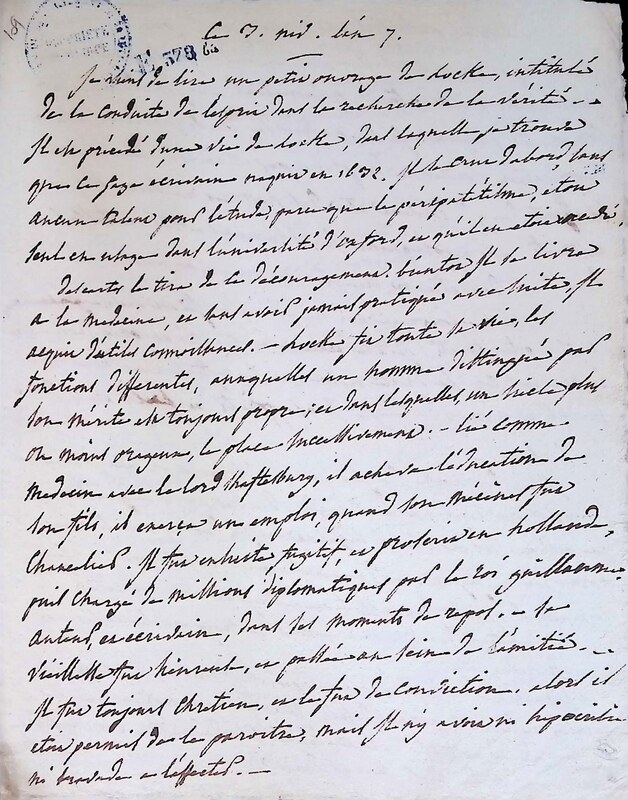 189
PROPRIÉTÉ
578 bis
Ce 3. niv. l'an 7.
Je viens de lire un petit ouvrage de Locke, intitulé
de la conduite de l'esprit dans la recherche de la vérité. —
Il est précédé d'une vie de Locke, dans laquelle je trouve
que ce sage écrivain naquit en 1632. Il se crut d'abord sans
aucun talent pour l'étude, parce que le péripatétisme, étoit
seul en usage dans l'université d'oxford, et qu'il en étoit excédé,
descartes le tira de ce découragement. bientôt il se livra
a la medecine, et sans avoir jamais pratiqué avec suite, il
acquit d'utiles connoissances. — Locke fit toute sa vie, les
fonctions differentes, auxquelles un homme distingué par
son mérite est toujours propre; et dans lesquelles, un siecle plus
ou moins orageux, le place successivement. — lié comme
medecin avec le lord Shaftesbury, il acheva l'éducation de
son fils, il exerça un emploi, quand son Mécènes fut
Chancelier. Il fut ensuite fugitif, et proscrit en hollande,
puis chargé de missions diplomatiques par le roi guillaume.
auteur, et écrivain, dans ses moments de repos. — sa
vieillesse fut heureuse, et passée au sein de l'amitié. —
Il fut toujours Chretien, et le fut de conviction, alors il
étoit permis de le paroitre, mais il n'y avoit ni hipocrisie
ni bravade a l'affecter. —